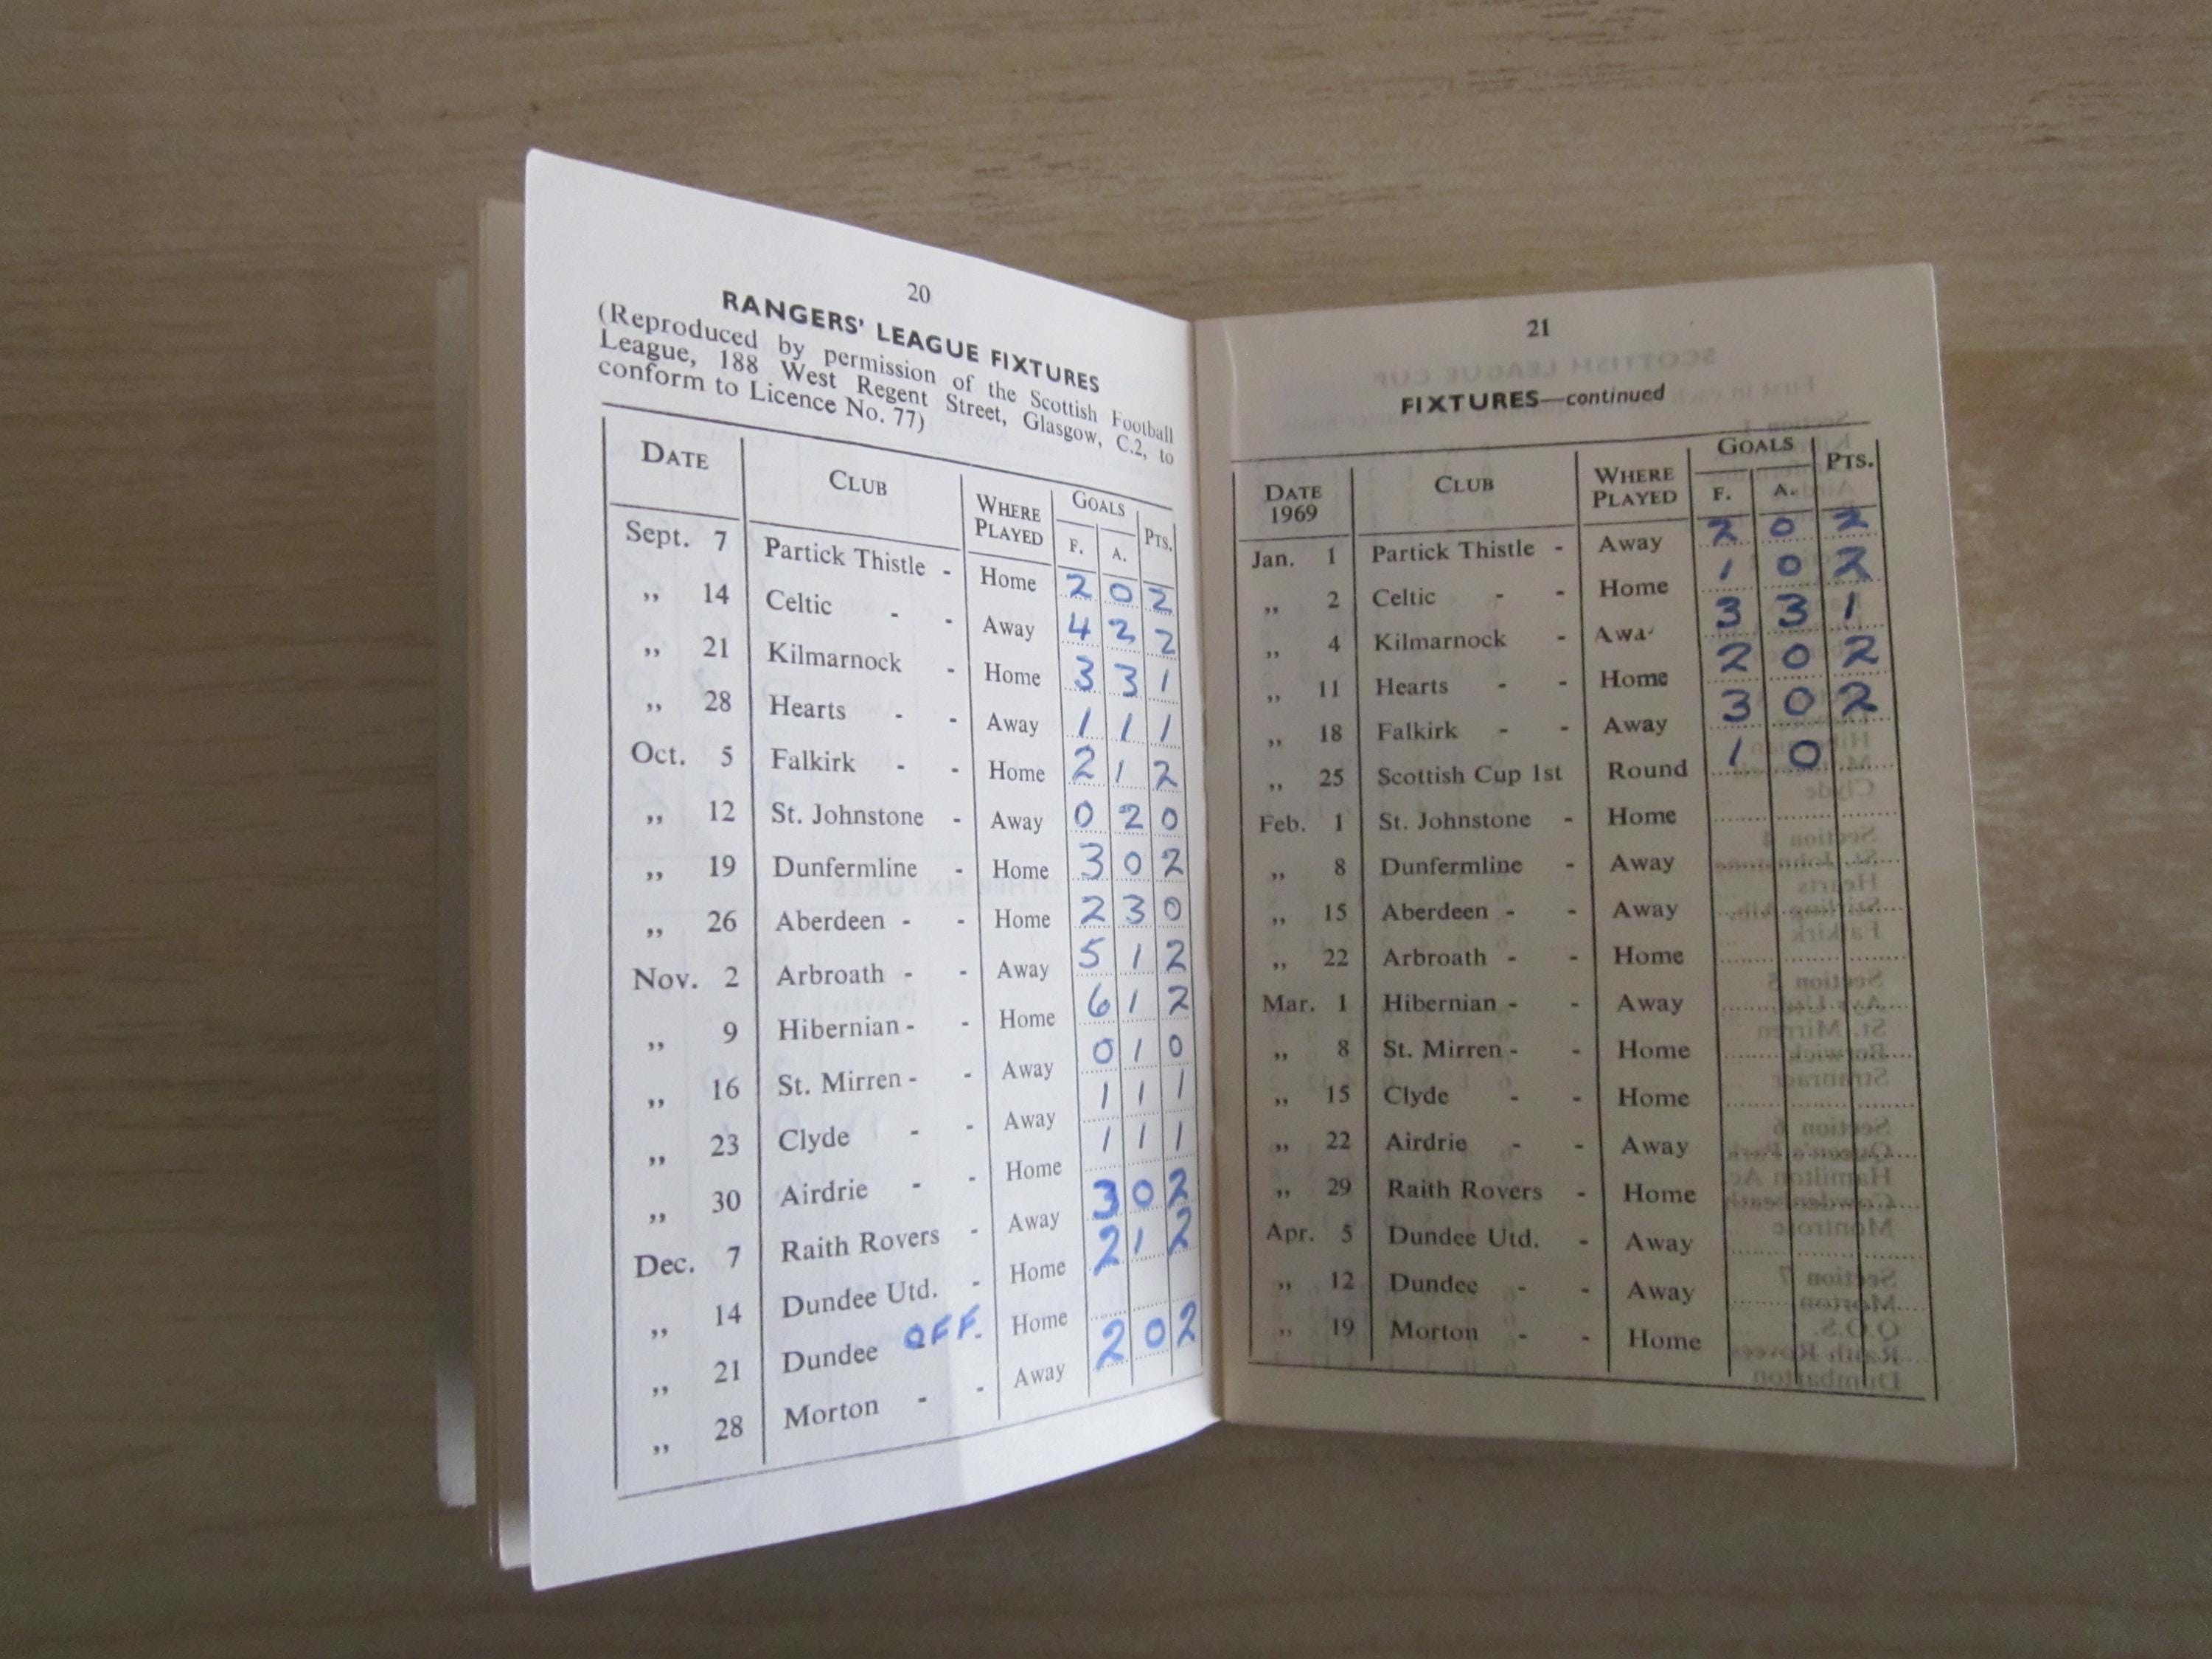 20
RANGERS' LEAGUE FIXTURES
(Reproduced by permission of the Scottish Football
League, 188 West Regent Street, Glasgow, C.2, to
conform to Licence No. 77)
DATE CLUB WHERE PLAYED GOALS F. A. PTS.
Sept. 7 Partick Thistle - Home 2 0 2
,, 14 Celtic - - Away 4 2 2
,, 21 Kilmarnock - Home 3 3 1
,, 28 Hearts - - Away 1 1 1
Oct. 5 Falkirk - - Home 2 1 2
,, 12 St. Johnstone - Away 0 2 0
,, 19 Dunfermline - Home 3 0 2
,, 26 Aberdeen - - Home 2 3 0
Nov. 2 Arbroath - - Away 5 1 2
,, 9 Hibernian - - Home 6 1 2
,, 16 St. Mirren - - Away 0 1 0
,, 23 Clyde - - Away 1 1 1
,, 30 Airdrie - - Home 1 1 1
Dec. 7 Raith Rovers - Away 3 0 2
,, 14 Dundee Utd. - Home 2 1 2
,, 21 Dundee OFF. - Home
,, 28 Morton - - Away 2 0 2
21
FIXTURES—continued
DATE 1969 CLUB WHERE PLAYED GOALS F. A. PTS.
Jan. 1 Partick Thistle - Away 2 0 2
,, 2 Celtic - - Home 1 0 2
,, 4 Kilmarnock - Awa 3 3 1
,, 11 Hearts - - Home 2 0 2
,, 18 Falkirk - - Away 3 0 2
,, 25 Scottish Cup 1st Round 1 0
Feb. 1 St. Johnstone - Home
,, 8 Dunfermline - Away
,, 15 Aberdeen - - Away
,, 22 Arbroath - - Home
Mar. 1 Hibernian - - Away
,, 8 St. Mirren - - Home
,, 15 Clyde - - Home
,, 22 Airdrie - - Away
,, 29 Raith Rovers - Home
Apr. 5 Dundee Utd. - Away
,, 12 Dundee - - Away
,, 19 Morton - - Home